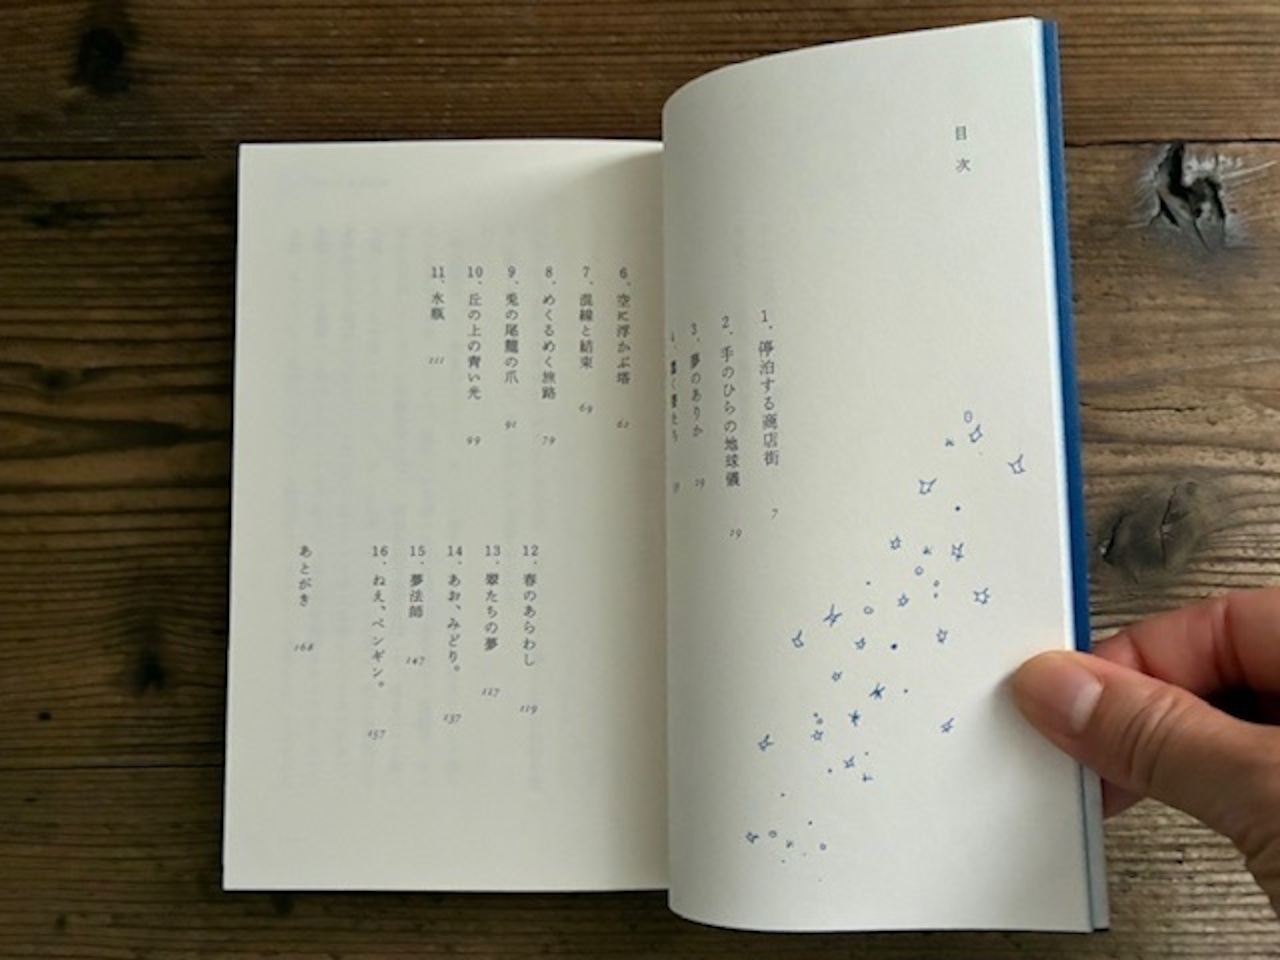 目次
1、停泊する商店街 7
2、手のひらの地球儀 19
3、夢のありか 29
6、空に浮かぶ塔 61
7、混線と結束 69
8、めくるめく旅路 79
9、兎の尾龍の爪 91
10、丘の上の青い光 99
11、水瓶 111
12、春のあらわし 119
13、翠たちの夢 127
14、あお、みどり。 137
15、夢法師 147
16、ねえ、ペンギン。 157
あとがき 168